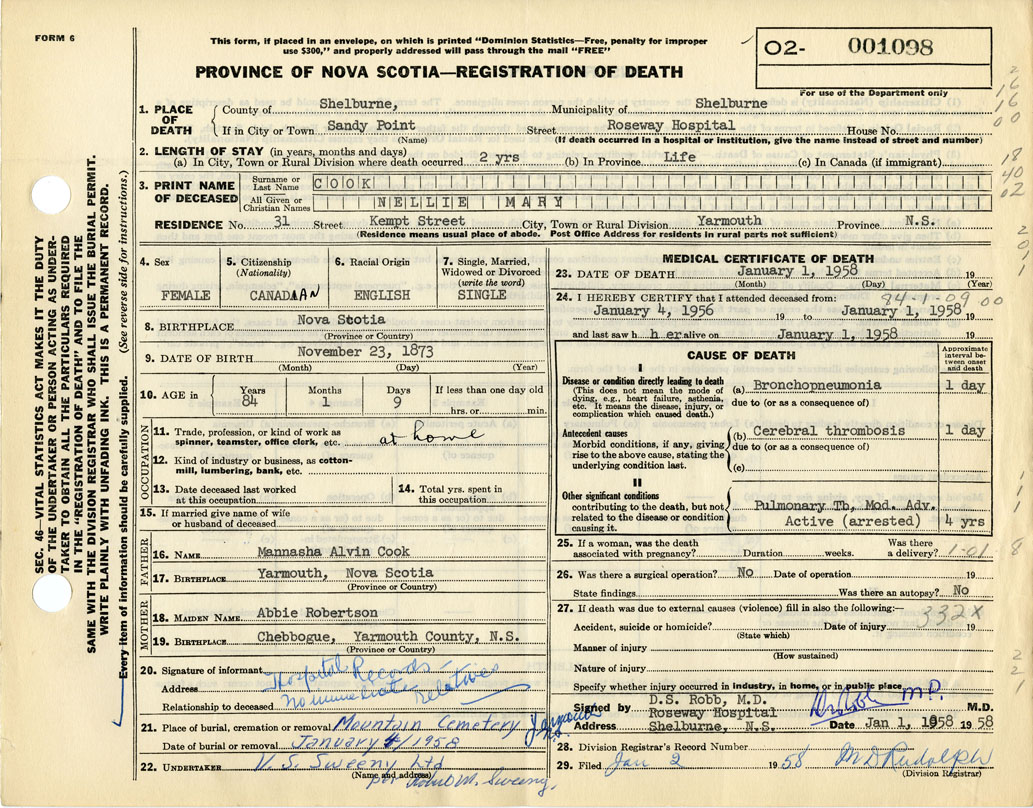 FORM 6
This form, if placed in an envelope, on which is printed "Dominion Statistics—Free, penalty for improper
use $300," and properly addressed will pass through the mail "FREE"
PROVINCE OF NOVA SCOTIA—REGISTRATION OF DEATH
02- 001098
For use of the Department only
SEC. 46—VITAL STATISTICS ACT MAKES IT THE DUTY
OF THE UNDERTAKER OR PERSON ACTING AS UNDER-
TAKER TO OBTAIN ALL THE PARTICULARS REQUIRED
IN THE "REGISTRATION OF DEATH" AND TO FILE THE
SAME WITH THE DIVISION REGISTRAR WHO SHALL ISSUE THE BURIAL PERMIT.
WRITE PLAINLY WITH UNFADING INK. THIS IS A PERMANENT RECORD.
Every item of information should be carefully supplied. (See reverse side for instructions.)
1. PLACE OF DEATH
County of Shelburne, Municipality of Shelburne
If in City or Town Sandy Point Street Roseway Hospital House No.
(Name) (If death occurred in a hospital or institution, give the name instead of street and number)
2. LENGTH OF STAY (in years, months and days)
(a) In City, Town or Rural Division where death occurred 2 yrs (b) In Province Life (c) In Canada (if immigrant)
3. PRINT NAME OF DECEASED
Surname or Last Name COOK
All Given or Christian Names NELLIE MARY
RESIDENCE No. 31 Street Kempt Street City, Town or Rural Division Yarmouth Province N.S.
(Residence means usual place of abode. Post Office Address for residents in rural parts not sufficient)
4. Sex
FEMALE
5. Citizenship
(Nationality)
CANADIAN
6. Racial Origin
ENGLISH
7. Single, Married,
Widowed or Divorced
(write the word)
SINGLE
8. BIRTHPLACE Nova Scotia
(Province or Country)
9. DATE OF BIRTH November 23, 1873
(Month) (Day) (Year)
10. AGE in
Years Months Days If less than one day old
84 1 9 hrs. or min.
OCCUPATION
11. Trade, profession, or kind of work as
spinner, teamster, office clerk, etc. at home
12. Kind of industry or business, as cotton-
mill, lumbering, bank, etc.
13. Date deceased last worked
at this occupation
14. Total yrs. spent in
this occupation
15. If married give name of wife
or husband of deceased
FATHER
16. NAME Mannasha Alvin Cook
17. BIRTHPLACE Yarmouth, Nova Scotia
(Province or Country)
MOTHER
18. MAIDEN NAME Abbie Robertson
19. BIRTHPLACE Chebbogue, Yarmouth County, N.S.
(Province or Country)
20. Signature of informant Hospital Records -
Address No immediate Relatives
Relationship to deceased
21. Place of burial, cremation or removal Mountain Cemetery Yarmouth
Date of burial or removal January 4/1958
22. UNDERTAKER V. S. Sweeny Ltd
(Name and address)
per M. Sweeny.
MEDICAL CERTIFICATE OF DEATH
23. DATE OF DEATH January 1, 1958 19
(Month) (Day) (Year)
84-1-09 00
24. I HEREBY CERTIFY that I attended deceased from:
January 4, 1956 19 to January 1, 1958 19
and last saw h er alive on January 1, 1958 19
CAUSE OF DEATH
Approximate
interval be-
tween onset
and death
I
Disease or condition directly leading to death
(This does not mean the mode of
dying, e.g., heart failure, asthenia,
etc. It means the disease, injury, or
complication which caused death.)
(a) Bronchopneumonia 1 day
due to (or as a consequence of)
Antecedent causes
Morbid conditions, if any, giving
rise to the above cause, stating the
underlying condition last.
(b) Cerebral thrombosis 1 day
due to (or as a consequence of)
(c)
II
Other significant conditions
contributing to the death, but not
related to the disease or condition
causing it.
Pulmonary Tb, Mod. Adv.
Active (arrested) 4 yrs
25. If a woman, was the death
associated with pregnancy? Duration weeks. Was there
a delivery? 1-01
26. Was there a surgical operation? No Date of operation 19
State findings Was there an autopsy? No
27. If death was due to external causes (violence) fill in also the following:—
332X
Accident, suicide or homicide? Date of injury 19
(State which)
Manner of injury
(How sustained)
Nature of injury
Specify whether injury occurred in industry, in home, or in public place
Signed by D.S. Robb, M.D. M.D.
Roseway Hospital
Address Shelburne, N.S. Date Jan 1, 1958 19 58
28. Division Registrar's Record Number
29. Filed Jan 2 19 58 M D Rudolph
(Division Registrar)